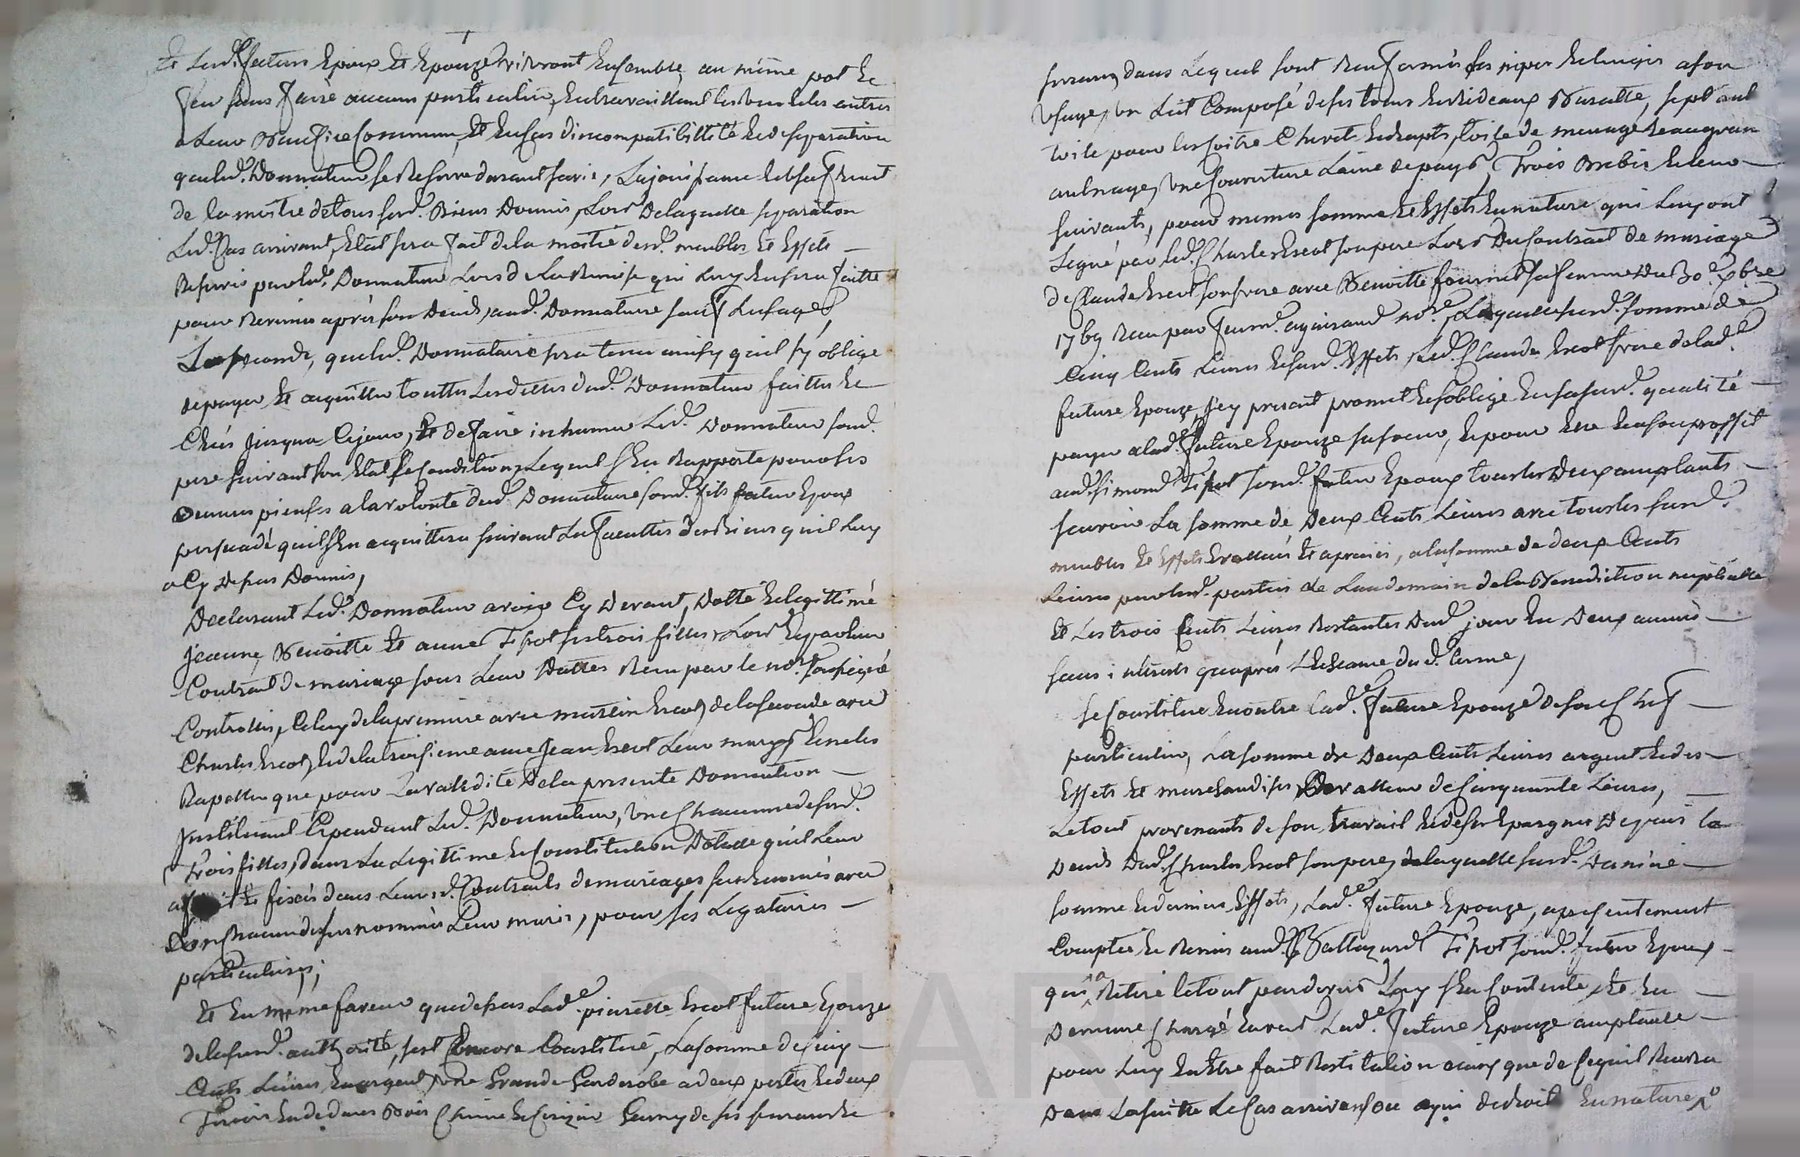 Et Lesd. futurs Epoux Et Epouze vivront Ensemble au même pot Et
feu sans faire aucun particulier, En travaillant les uns Et les autres
a Leur Benefice Commun, Et En Cas d'incompatibillité Et de separation
que led. Donnateur se Reserve durant sa vie, La jouissance Et Usufruit
de la moitié de tous sesd. Biens Donnés, Lors De laquelle separation
Led. Cas arrivant, Etat sera fait de la moitié desd. meubles Et Effets
Reservés par led. Donnateur Lors de La Remise qui Luy En sera faitte
pour Revenir après son Deceds, aud. Donnataire sauf L'usage,
La seconde, que led. Donnataire sera tenu ainsy qu'il s'y oblige
de payer Et acquitter touttes Les dettes dud. Donnateur faittes Et
Crées jusqu'a Cejour, Et de faire inhumer Led. Donnateur sond.
pere suivant son Etat Et Condition, Lequel s'En Rapporte pour ses
Oeuvres pieuses a la volonté dud. Donnataire sond. fils futur Epoux
persuadé qu'il s'En acquittera suivant Les facultés des Biens qu'il Luy
a Cy Depas Donnés,
Declarant Led. Donnateur avoir Cy Devant, Dotté Et legittimé
Jeanne, Benoitte Et anne Tipot ses trois filles, Lors Et par leur
Contrat de mariage sous Leur Dattes Reçu par le no.re soussigné
Controllés, Celuy de la premiere avec martin Escot, de la seconde avec
Charles Escot, Et de la troisieme avec Jean Escot Leur marys Et ne les
Rapeller que pour La validité De la presente Donnation
Instituant Cependant Led. Donnateur, Une Chacunne de sesd.
Trois filles, dans La Legittime Et Constitution Dotalle qu'il Leur
a fait Et fixés dans Leursd. Contrats de mariages susénoncés avec
Un Chacun des susnommés Leur maris, pour ses Legataires
particulieres;
Et En meme faveur que depas Lad.e pierrette Escot future Epouze
de la susd. authorité, s'est Encore Constitué, La somme de Cinq
Cents Livres En argent, une Grande Garderobe a deux portes Et deux
Tiroirs En dedans Bois Chêne Et Cerizier Garny de ses serrures Et
ferrures, dans Lequel sont Renfermés ses nipes Et linges a son
Usage, Un Lit Composé de ses tours En Rideaux Burattes, sept aul
toile pour les Coitre Chevet Et draps, toile de menage
aulnage, Une Couverture Laine de pays, Trois Brebis Et leur
suivants, pour memes somme Et Effets En nature qui Luy ont
Legué par led. Charles Escot son pere Lors Du Contrat de mariage
de Claude Escot son frere avec Benoitte fournet sa femme Du 30.e 9bre
1769 Reçu par feu no.re, Laquelle susd. somme de
Cinq Cents Livres Et susd. Effets, Led. Claude Escot frere de lad.e
future Epouze, y present promet Et s'oblige En sa susd. qualité
payer a lad.e future Epouze sa soeur, Et pour Elle En son proffit
aud. Simond Tipot sond. futur Epoux tous les Deux acceptants
scavoir La somme de Deux Cents Livres avec tous les susd.
meubles Et Effets Evallués Et aprecies, a la somme de deux Cents
Livres par lesd. parties Le Landemain de la Benediction nuptialle
Et Les trois Cents Livres Restantes Dud. jour En Deux années
sans interets qu'après L'Echeance du d. terme,
Se Constitue En outre Lad.e future Epouze de son Chef
particulier, La somme de Deux Cents Livres argent Et des
Effets Et marchandises De valleur de Cinquante Livres,
Le tout provenants de son travail Et de ses Epargnes Depuis la
Deceds Dud. Charles Escot son pere, de laquelle susd. Derniere
somme Et derniers Effets, Lad.e future Epouze, a presentement
Comptés Et Remis aud. Tipot sond. futur Epoux
qui a Retiré le tout par devers Luy s'En Contente, Et En
Demeure Chargé Envers Lad.e future Epouze acceptante
pour Luy En Etre fait Restitution ainsy que de Ce qu'il Recevra
Dans La suitte Le Cas arrivant ou a qui de droit En nature